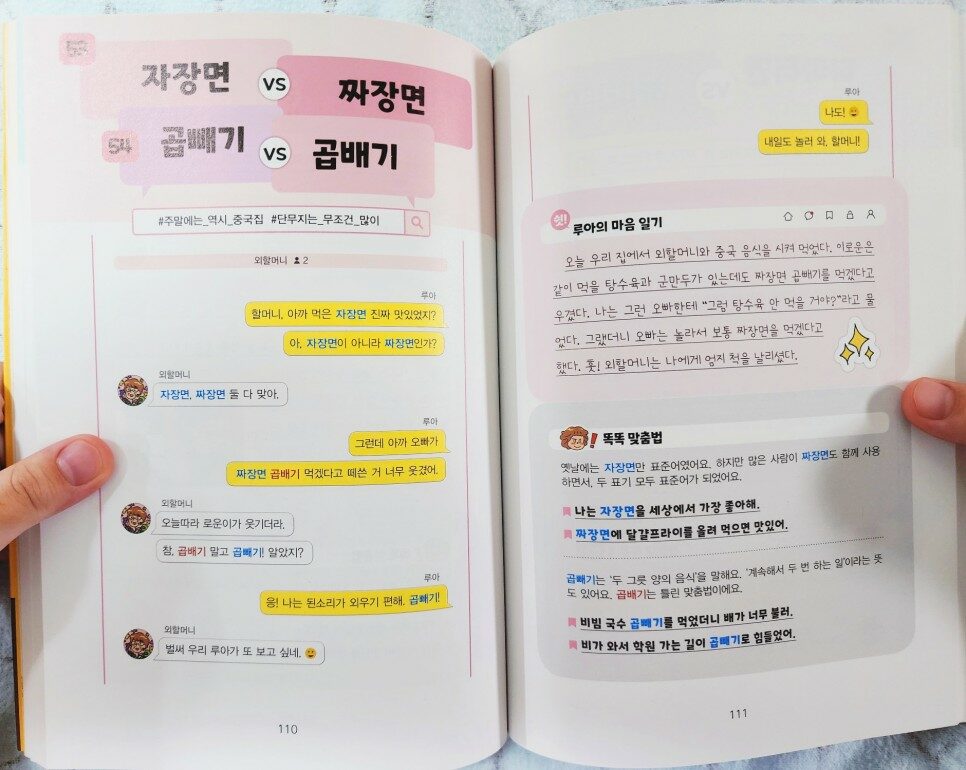 53
자장면 VS 짜장면
54
곱빼기 VS 곱배기
#주말에는_역시_중국집 #단무지는_무조건_많이
외할머니 2
루아
할머니, 아까 먹은 자장면 진짜 맛있었지?
아, 자장면이 아니라 짜장면인가?
외할머니
자장면, 짜장면 둘 다 맞아.
루아
그런데 아까 오빠가
짜장면 곱배기 먹겠다고 떼쓴 거 너무 웃겼어.
외할머니
오늘따라 로운이가 웃기더라.
참, 곱배기 말고 곱빼기! 알았지?
루아
응! 나는 된소리가 외우기 편해. 곱빼기!
외할머니
벌써 우리 루아가 또 보고 싶네.
110
루아
나도!
내일도 놀러 와, 할머니!
쉿! 루아의 마음 일기
오늘 우리 집에서 외할머니와 중국 음식을 시켜 먹었다. 이로운은
같이 먹을 탕수육과 군만두가 있는데도 짜장면 곱빼기를 먹겠다고
우겼다. 나는 그런 오빠한테 “그럼 탕수육 안 먹을 거야?”라고 물
었다. 그랬더니 오빠는 놀라서 보통 짜장면을 먹겠다고
했다. 훗! 외할머니는 나에게 엄지 척을 날리셨다.
똑똑 맞춤법
옛날에는 자장면만 표준어였어요. 하지만 많은 사람이 짜장면도 함께 사용
하면서, 두 표기 모두 표준어가 되었어요.
나는 자장면을 세상에서 가장 좋아해.
짜장면에 달걀프라이를 올려 먹으면 맛있어.
곱빼기는 ‘두 그릇 양의 음식’을 말해요. ‘계속해서 두 번 하는 일’이라는 뜻
도 있어요. 곱배기는 틀린 맞춤법이에요.
비빔 국수 곱빼기를 먹었더니 배가 너무 불러.
비가 와서 학원 가는 길이 곱빼기로 힘들었어.
111